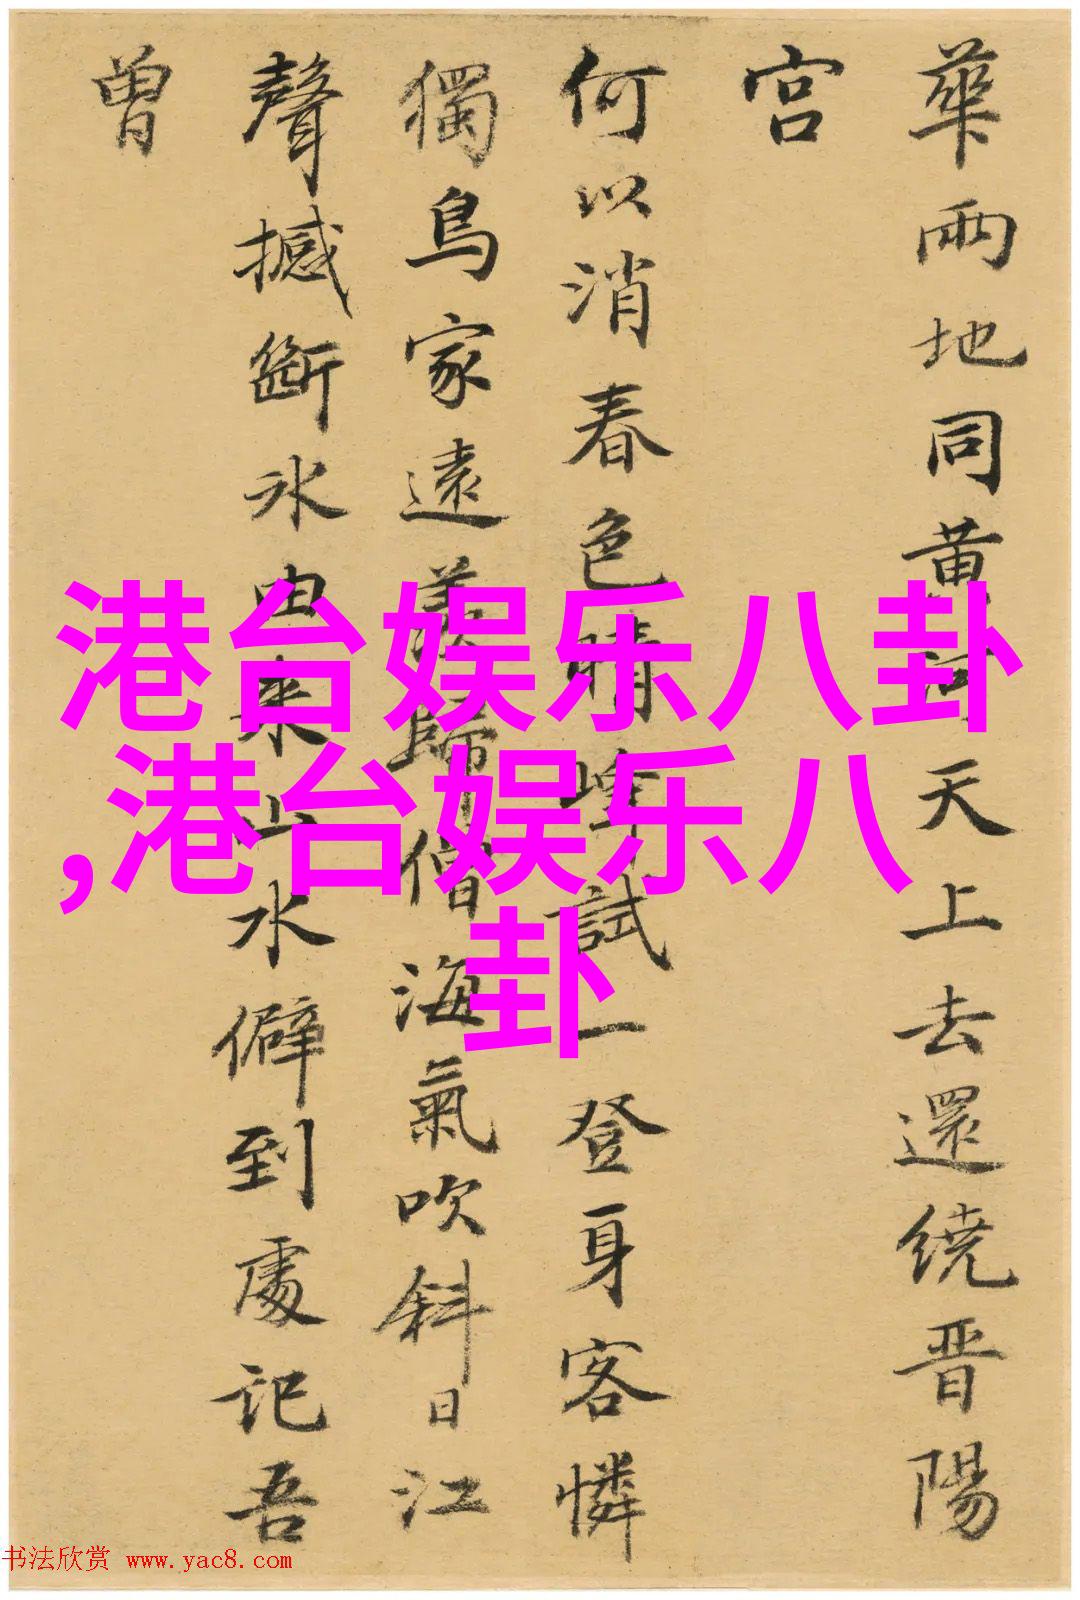 華兩地同黄河天上去還繞晋陽
宫
何以消春色晴峰試一登身客憐
獨鳥家遠羨歸僧海氣吹斜日江
聲撼斷冰由來山水僻到處記吾
曽
港台娱乐八卦
,港台娱乐八
卦
书法欣赏 www.yac8.com